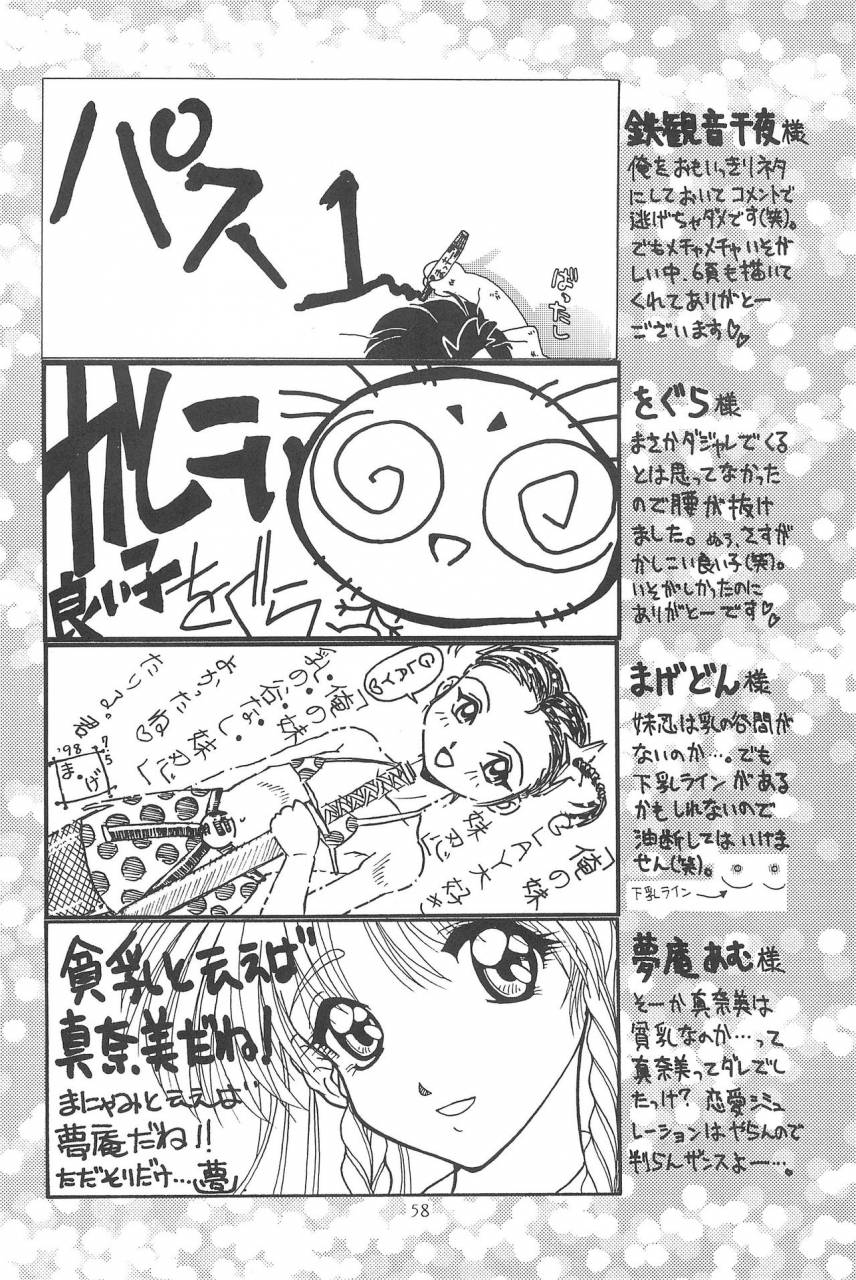 パス1
ばったし
鉄観音千夜様
俺をおもいっきりネタ
にしておいてコメントで
逃げちゃダメです(笑)。
でもメチャメチャいそが
しい中、6頁も描いて
くれてありがとー
ございます♡♡
良い子
をぐら
をぐら様
まさかダジャレでくる
とは思ってなかった
ので腰が抜け
ました。ぬう、さすが
かしこい良い子(笑)。
いそがしかったのに
ありがとーです♡
GLAY♡
「俺の妹
乳の谷なし
妹忍」
よかったね♡
たりつぁ。君
'98 7.5
まげ
「俺の妹
GLAY大好き
妹忍」
まげどん様
妹忍は乳の谷間が
ないのか…。でも
下乳ラインがある
かもしれないので
油断してはいけま
せん(笑)。
下乳ライン→
貧乳と云えば
真奈美だね!
まにゃみと云えば
夢庵だね!!
ただそりだけ…夢
夢庵あむ様
そーか真奈美は
貧乳なのか…って
真奈美ってダレでし
たっけ?恋愛シミュ
レーションはやらんので
判らんザンスよー…。
58